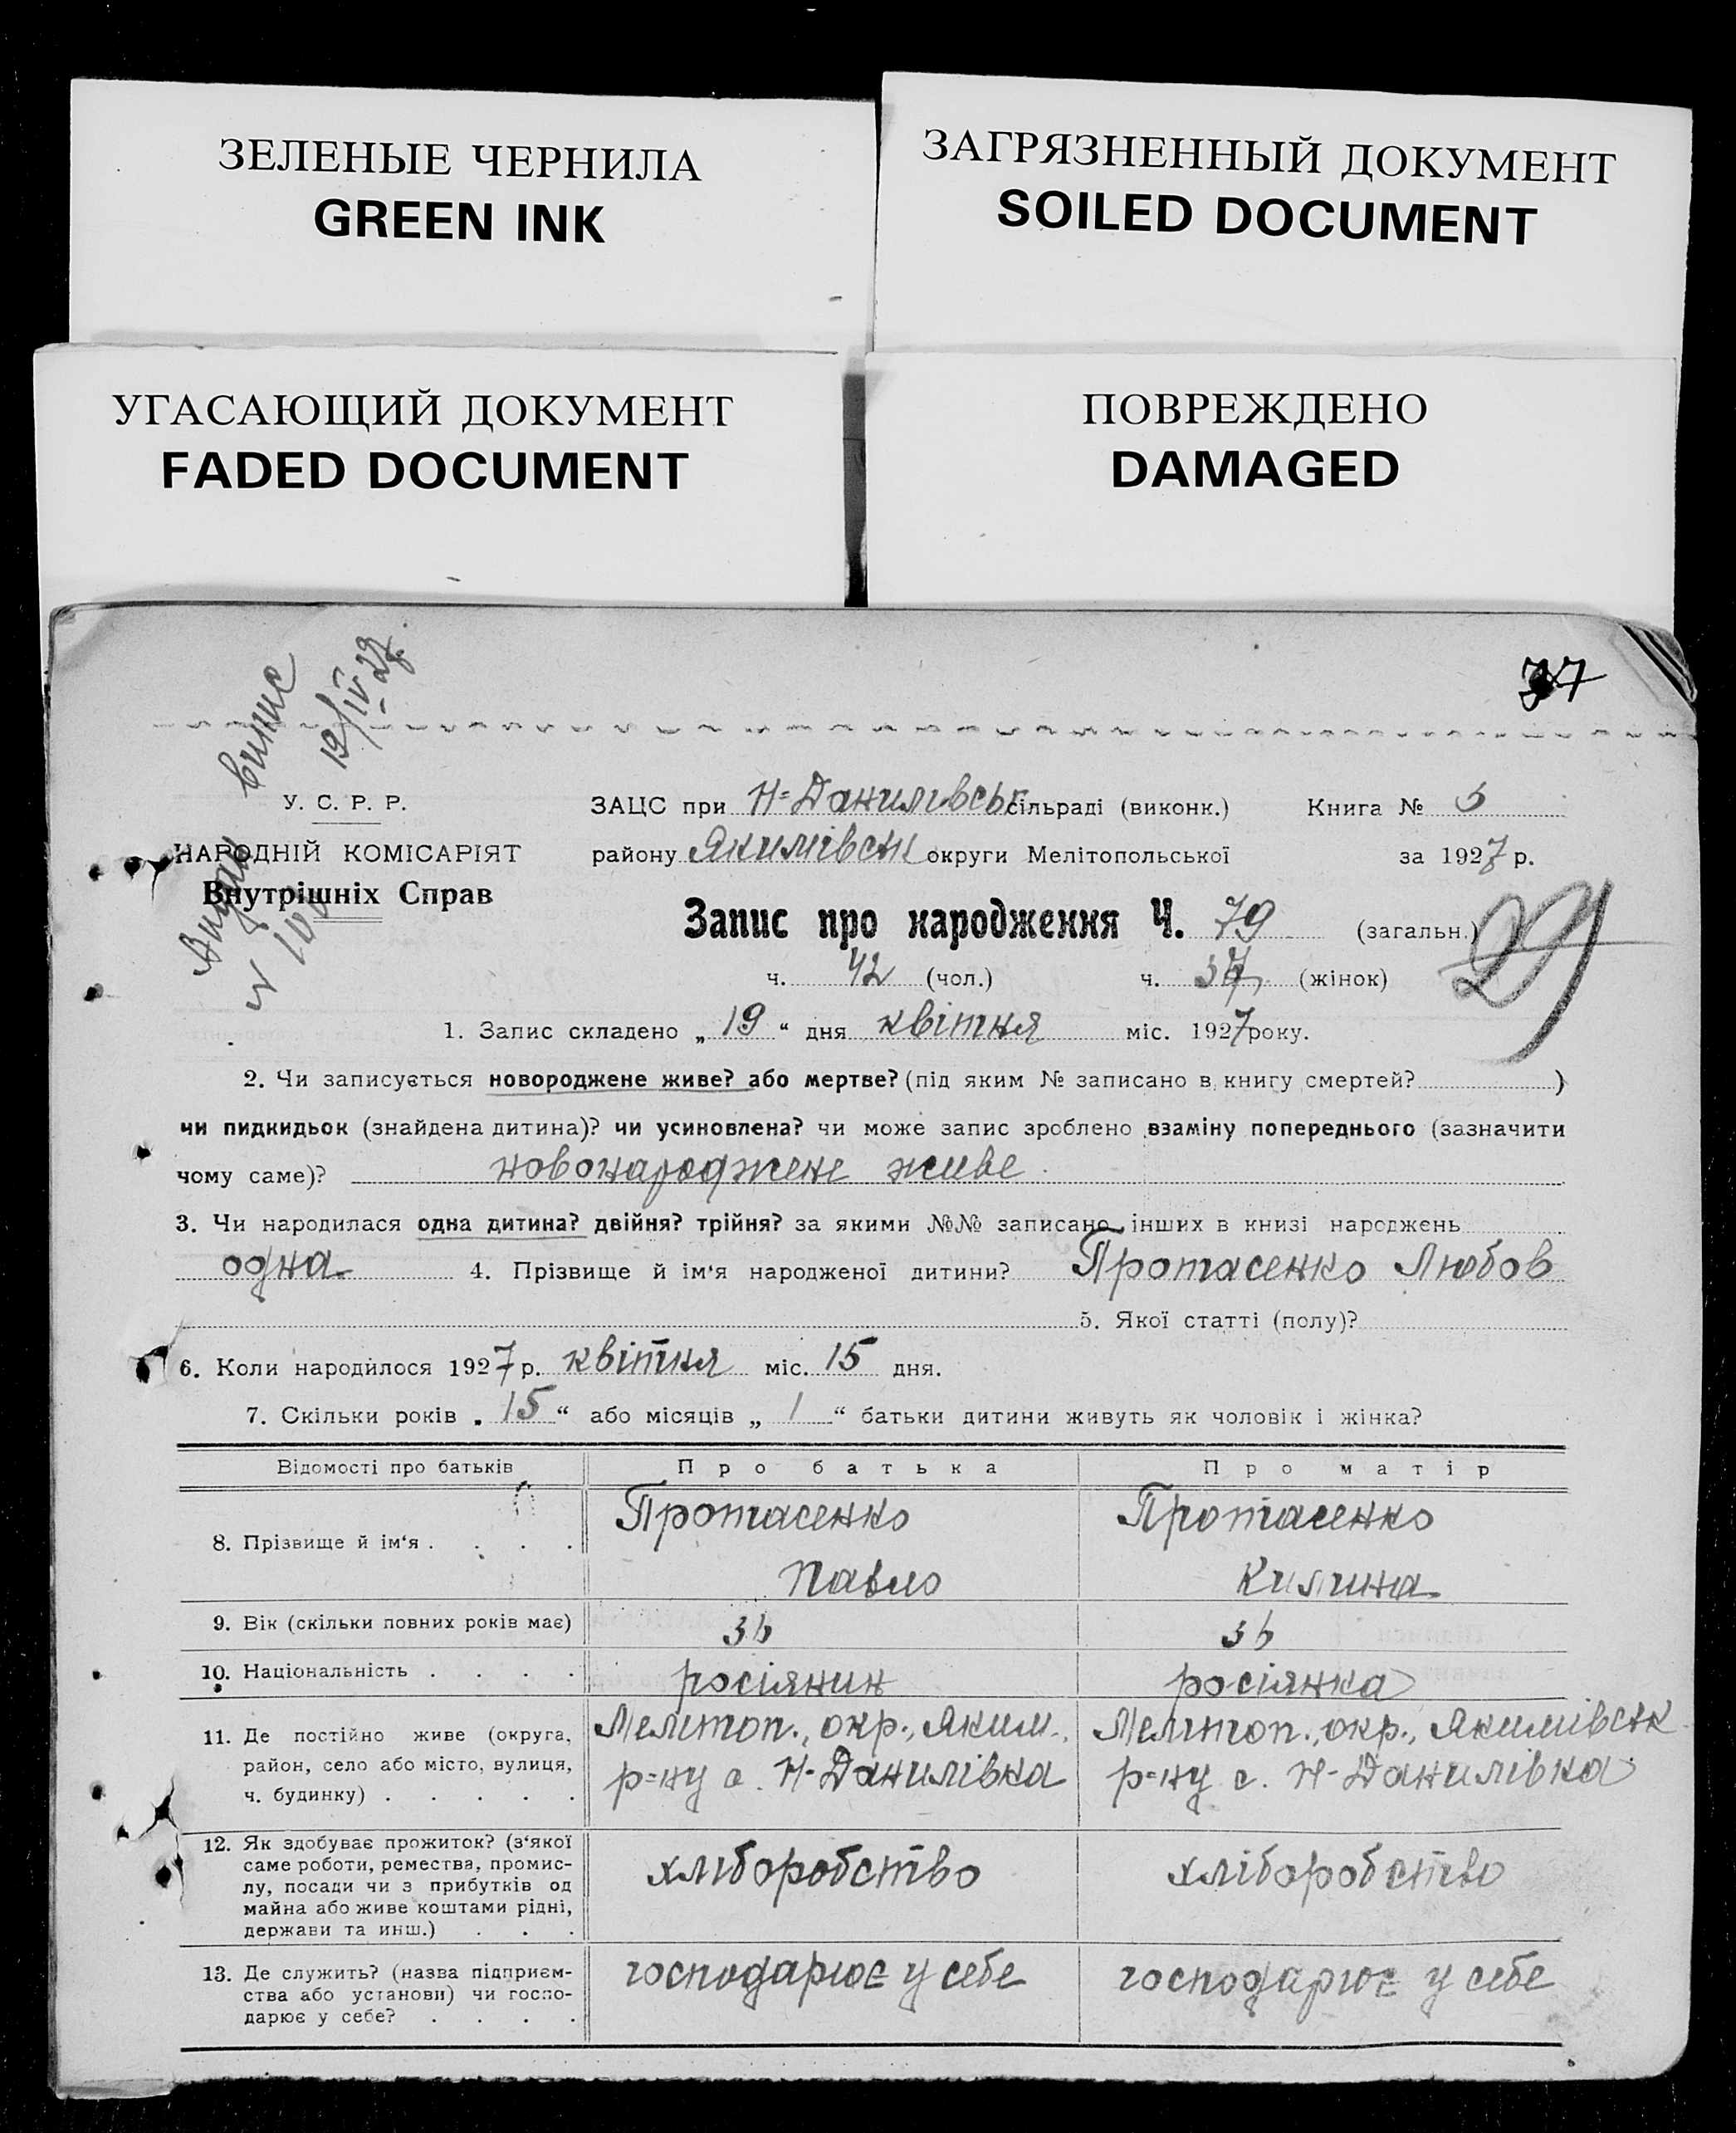 ЗЕЛЕНЫЕ ЧЕРНИЛА
GREEN INK
ЗАГРЯЗНЕННЫЙ ДОКУМЕНТ
SOILED DOCUMENT
УГАСАЮЩИЙ ДОКУМЕНТ
FADED DOCUMENT
ПОВРЕЖДЕНО
DAMAGED
Видан витис
№ 100 19/IV 27
У. С. Р. Р.
НАРОДНІЙ КОМІСАРІЯТ
Внутрішніх Справ
ЗАЦС при Н=Данилівськ сільраді (виконк.) Книга №
району Якимівськ округи Мелітопольської за 1927 р.
Запис про народження Ч. 79 (загальн.)
29
ч. 42 (чол.) ч. 37 (жінок)
1. Запис складено „ 19 “ дня квітня міс. 1927 року.
2. Чи записується новороджене живе? або мертве? (під яким № записано в книгу смертей? )
чи пидкидьок (знайдена дитина)? чи усиновлена? чи може запис зроблено взаміну попереднього (зазначити
чому саме)? новонароджене живе
3. Чи народилася одна дитина? двійня? трійня? за якими №№ записано інших в книзі народжень
одна 4. Прізвище й ім‘я народженої дитини? Протасенко Любов
5. Якої статті (полу)?
6. Коли народилося 1927 р. квітня міс. 15 дня.
7. Скільки років „ 15 “ або місяців „ 1 “ батьки дитини живуть як чоловік і жінка?
Відомості про батьків Про батька Про матір
8. Прізвище й ім‘я . . . . Протасенко Павло Протасенко Килина
9. Вік (скільки повних років має) 36 36
10. Національність . . . . росіянин росіянка
11. Де постійно живе (округа, Мелітоп., окр., Яким., Мелітоп., окр., Якимівськ
район, село або місто, вулиця, р=ну с. Н-Данилівка р=ну с. Н-Данилівка
ч. будинку) . . . . .
12. Як здобуває прожиток? (з‘якої
саме роботи, ремества, промис- хліборобство хліборобство
лу, посади чи з прибутків од
майна або живе коштами рідні,
держави та инш.) . . .
13. Де служить? (назва підприєм- господарює у себе господарює у себе
ства або установи) чи госпо-
дарює у себе? . . . .